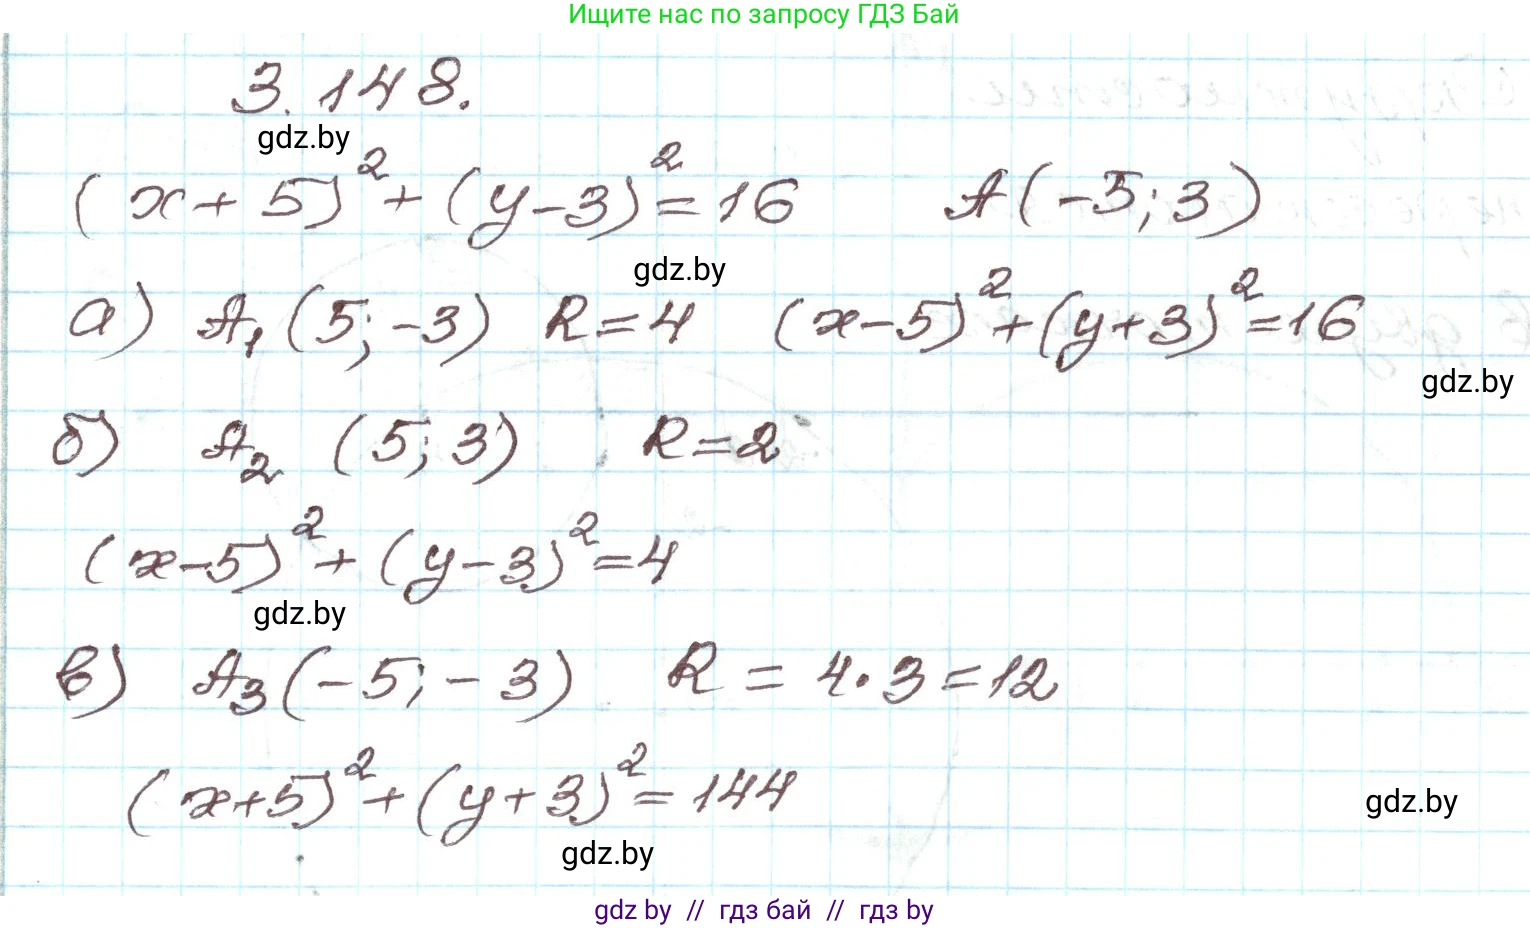 Ищите нас по запросу ГДЗ Бай
3.148.
gdz.by
(x+5)²+(y-3)²=16 A(-5;3)
gdz.by
а) A₁(5;-3) R=4 (x-5)²+(y+3)²=16
gdz.by
б) A₂ (5;3) R=2
(x-5)²+(y-3)²=4
gdz.by
в) A₃(-5;-3) R=4·3=12
(x+5)²+(y+3)²=144
gdz.by
gdz.by
gdz by // гдз бай // гдз by